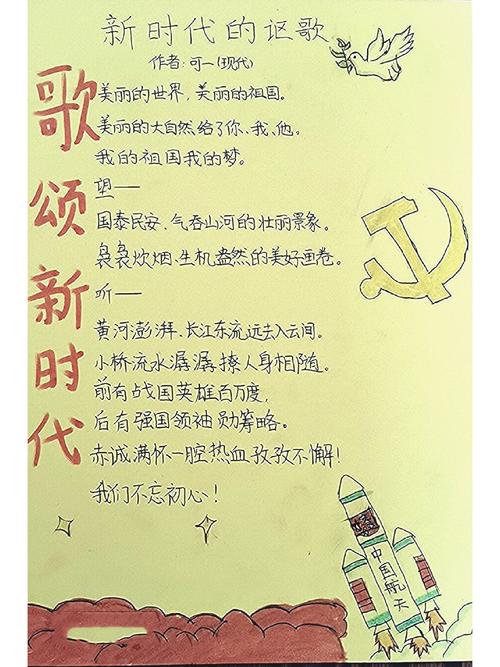 新时代的讴歌
作者:可一(现代)
歌颂新时代
美丽的世界,美丽的祖国。
美丽的大自然给了你、我、他。
我的祖国我的梦。
望——
国泰民安、气吞山河的壮丽景象。
袅袅炊烟、生机盎然的美好画卷。
听——
黄河澎湃、长江东流远去入云间。
小桥流水潺潺撩人身相随。
前有战国英雄百万度,
后有强国领袖勋筹略。
赤诚满怀一腔热血孜孜不懈!
我们不忘初心!
中国航天